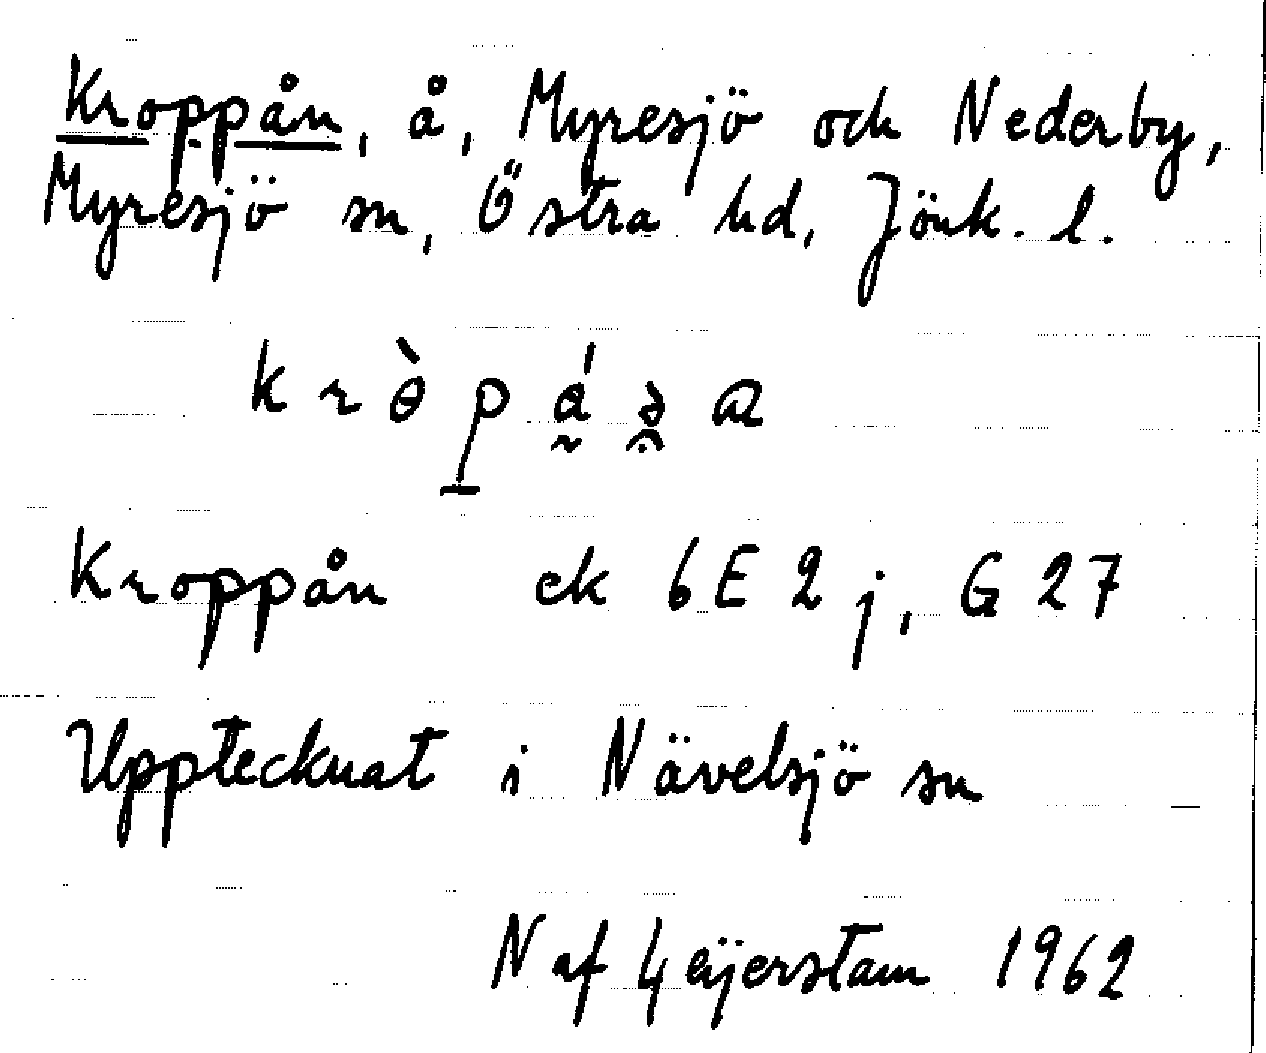 Kroppån, å, Myresjö och Nederby,
Myresjö sn, Östra hd, Jönk. l.
Kroppån ek 6E2j, G27
Upptecknat i Nävelsjö sn
N af Geijerstam 1962